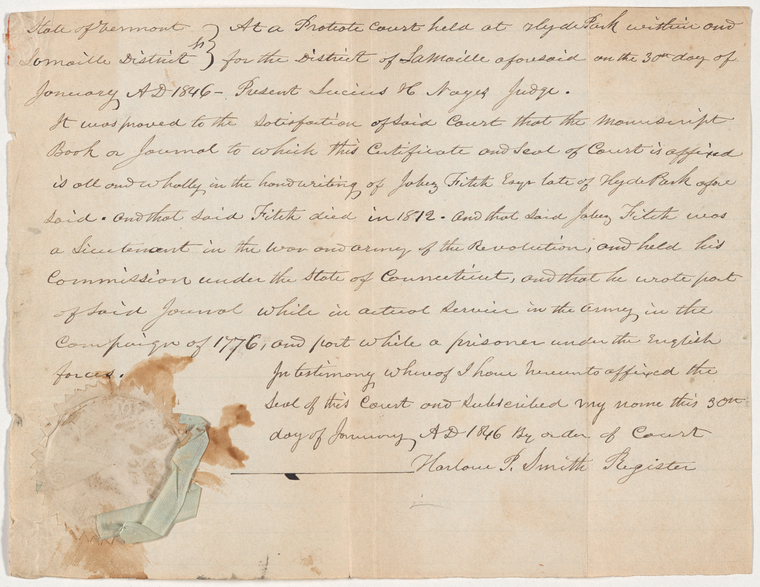 State of Vermont } At a Probate Court held at Hyde Park within and
Lamoille District ss } for the District of LaMoille aforesaid on the 30th day of
January AD 1846 - Present Lucius H Noyes Judge.
It was proved to the satisfaction of said Court that the manuscript
Book or Journal to which this Certificate and Seal of Court is affixed
is all and wholly in the handwriting of Jabez Fitch Esqr late of Hyde Park afore
said. And that said Fitch died in 1812. And that said Jabez Fitch was
a Lieutenant in the War and army of the Revolution, and held his
Commission under the State of Connecticut, and that he wrote part
of said Journal while in actual service in the army in the
Campaign of 1776, and part while a prisoner under the English
forces.
In testimony whereof I have hereunto affixed the
Seal of this Court and subscribed my name this 30th
day of January AD 1846 By order of Court
Harlow P. Smith Register